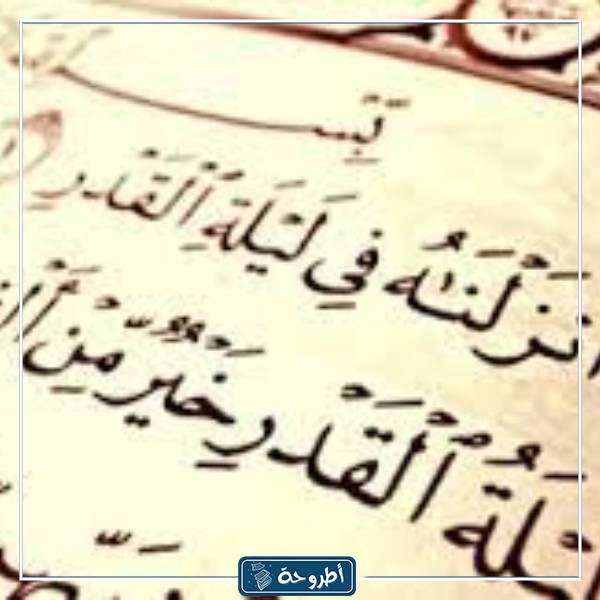 بِسْـ
أَنزَلْنَٰهُ فِي لَيْلَةِ ٱلْقَدْرِ
لَيْلَةُ ٱلْقَدْرِ خَيْرٌ مِّنْ أَلْ
أطروحة